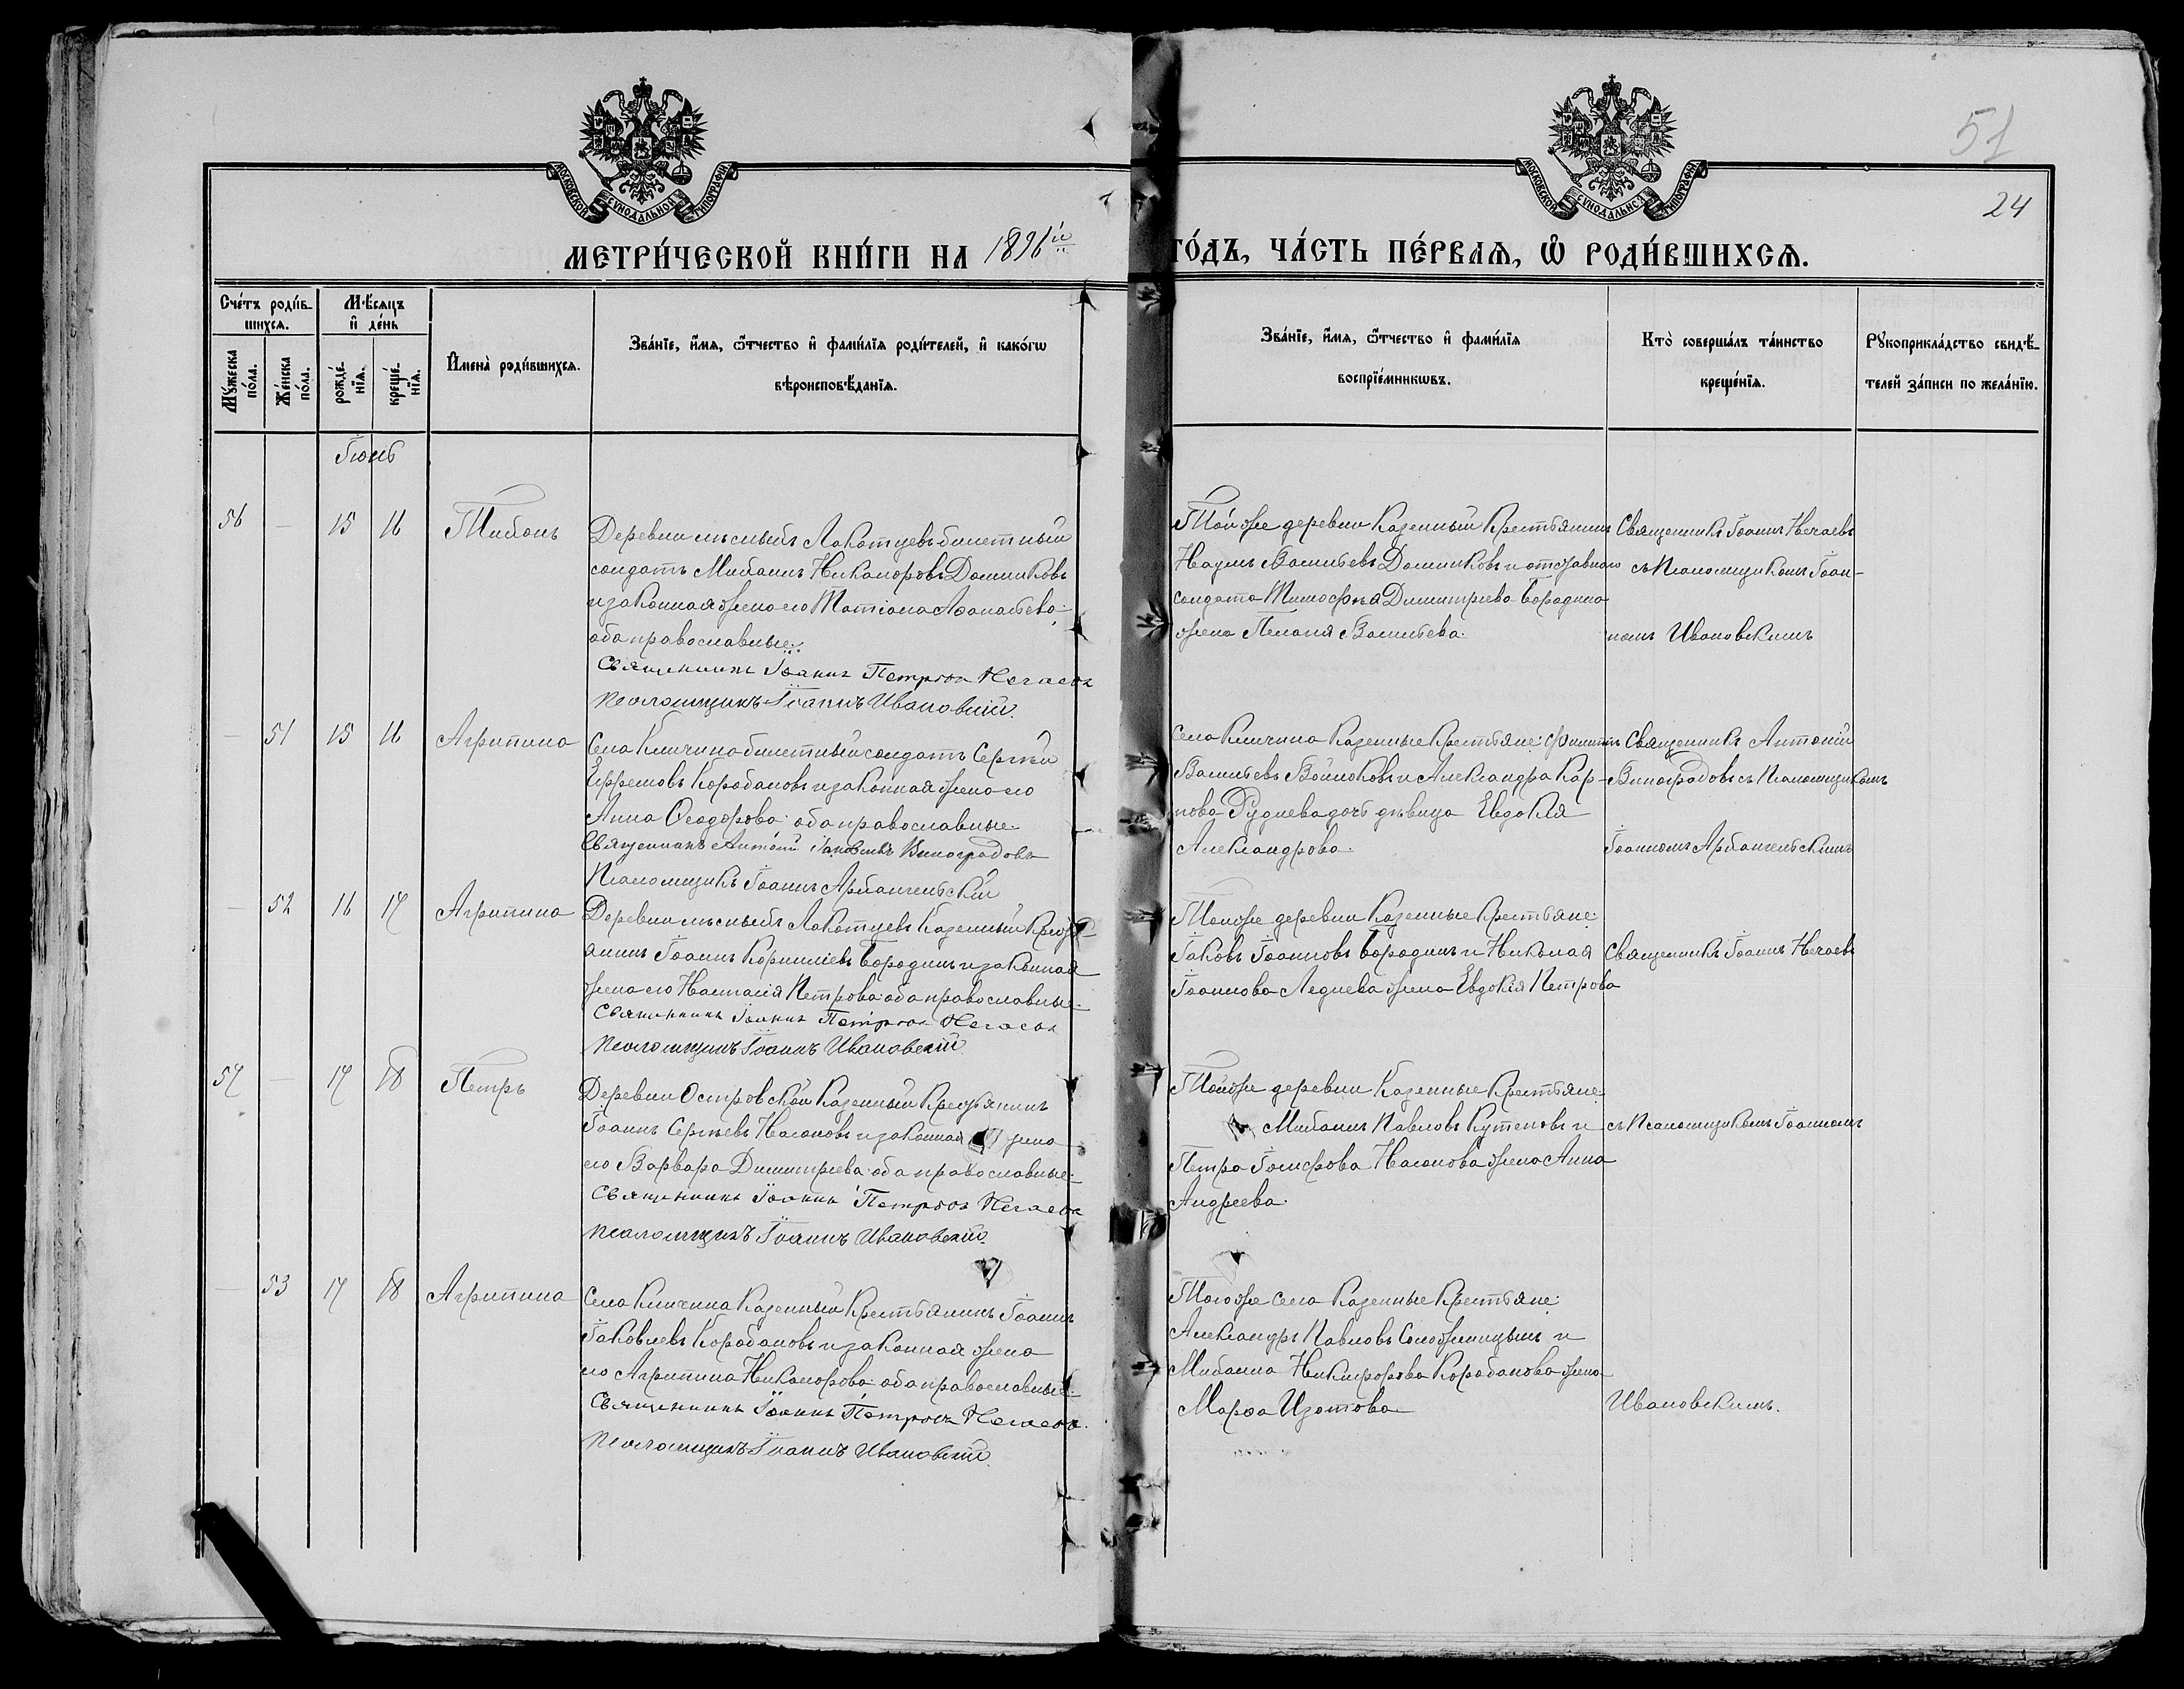 МОСКОВСКОЙ СѴНОДАЛЬНОЙ ТИПОГРАФІИ
МОСКОВСКОЙ СѴНОДАЛЬНОЙ ТИПОГРАФІИ
51
24
МЕТРИ́ЧЕСКОЙ КНИ́ГИ НА 1896й
ГО́ДЪ, ЧА́СТЬ ПЕ́РВАѦ, Ѡ҆ РОДИ́ВШИХСѦ.
Сче́тъ роди́в-
шихсѧ.
Мꙋжеска по́ла.
Же́нска по́ла.
Мѣ́сѧцъ
и҆ де́нь
рожде́-
нїѧ.
креще́-
нїѧ.
И҆мена̀ роди́вшихсѧ.
Зва́нїе, и҆́мѧ, ѻ҆́тчество и҆ фами́лїѧ роди́телей, и҆ како́гѡ
вѣроисповѣ́данїѧ.
Зва́нїе, и҆́мѧ, ѻ҆́тчество и҆ фами́лїѧ
воспрїе́мникѡвъ.
Кто̀ соверша́лъ та́инство
креще́нїѧ.
Рꙋкоприкла́дство свидѣ́-
телей за́писи по жела́нїю.
Іюнь
56 — 15 16 Тихонъ
Деревни Лакотцевъ билетный
солдатъ Михаилъ Никаноровъ Домниковъ
и законная жена его Татіана Аѳанасьева
оба православные.
Священникъ Іоаннъ Петровъ Нечаевъ
Псаломщикъ Іоаннъ Ивановскій.
Той же деревни Казенный Крестьянинъ
Наумъ Васильевъ Домниковъ и отставнаго
солдата Тимофея Димитріева Бородина
жена Пелагія Васильева.
Священникъ Іоаннъ Нечаевъ
съ Псаломщикомъ Іоан-
номъ Ивановскимъ
— 51 15 16 Агрипина
Села Кличина билетный солдатъ Сергѣй
Ефремовъ Корабановъ и законная жена его
Анна Ѳеодорова оба православные.
Священникъ Антоній Іаковлевъ Виноградовъ
Псаломщикъ Іоаннъ Архангельскій
Села Кличина Казенные Крестьяне: Филиппъ
Васильевъ Войноковъ и Александра Кар-
пова Руднева дочь дѣвица Евдокія
Александрова.
Священникъ Антоній
Виноградовъ съ Псаломщикомъ
Іоанномъ Архангельскимъ
— 52 16 17 Агрипина
Деревни Лакотцевъ Казенный Крестья-
нинъ Іоаннъ Корниліевъ Бородинъ и законная
жена его Наталія Петрова оба православные.
Священникъ Іоаннъ Петровъ Нечаевъ
Псаломщикъ Іоаннъ Ивановскій
Той же деревни Казенные Крестьяне:
Іаковъ Іоанновъ Бородинъ и Николая
Іоаннова Леднева жена Евдокія Петрова
Священникъ Іоаннъ Нечаевъ
57 — 17 18 Петръ
Деревни Островской Казенный Крестьянинъ
Іоаннъ Сергѣевъ Насоновъ и законная жена
его Варвара Димитріева оба православные.
Священникъ Іоаннъ Петровъ Нечаевъ
Псаломщикъ Іоаннъ Ивановскій.
Той же деревни Казенные Крестьяне:
Михаилъ Павловъ Кутеповъ и
Петра Іосифова Насонова жена Анна
Андреева.
съ Псаломщикомъ Іоанномъ
— 53 17 18 Агрипина
Села Кличина Казенный Крестьянинъ Іоаннъ
Іаковлевъ Корабановъ и законная жена
его Агрипина Никанорова оба православные.
Священникъ Іоаннъ Петровъ Нечаевъ.
Псаломщикъ Іоаннъ Ивановскій.
Того же села Казенные Крестьяне:
Александръ Павловъ и
Михаила Никифорова Корабанова жена
Марѳа Изотова
Ивановскимъ.